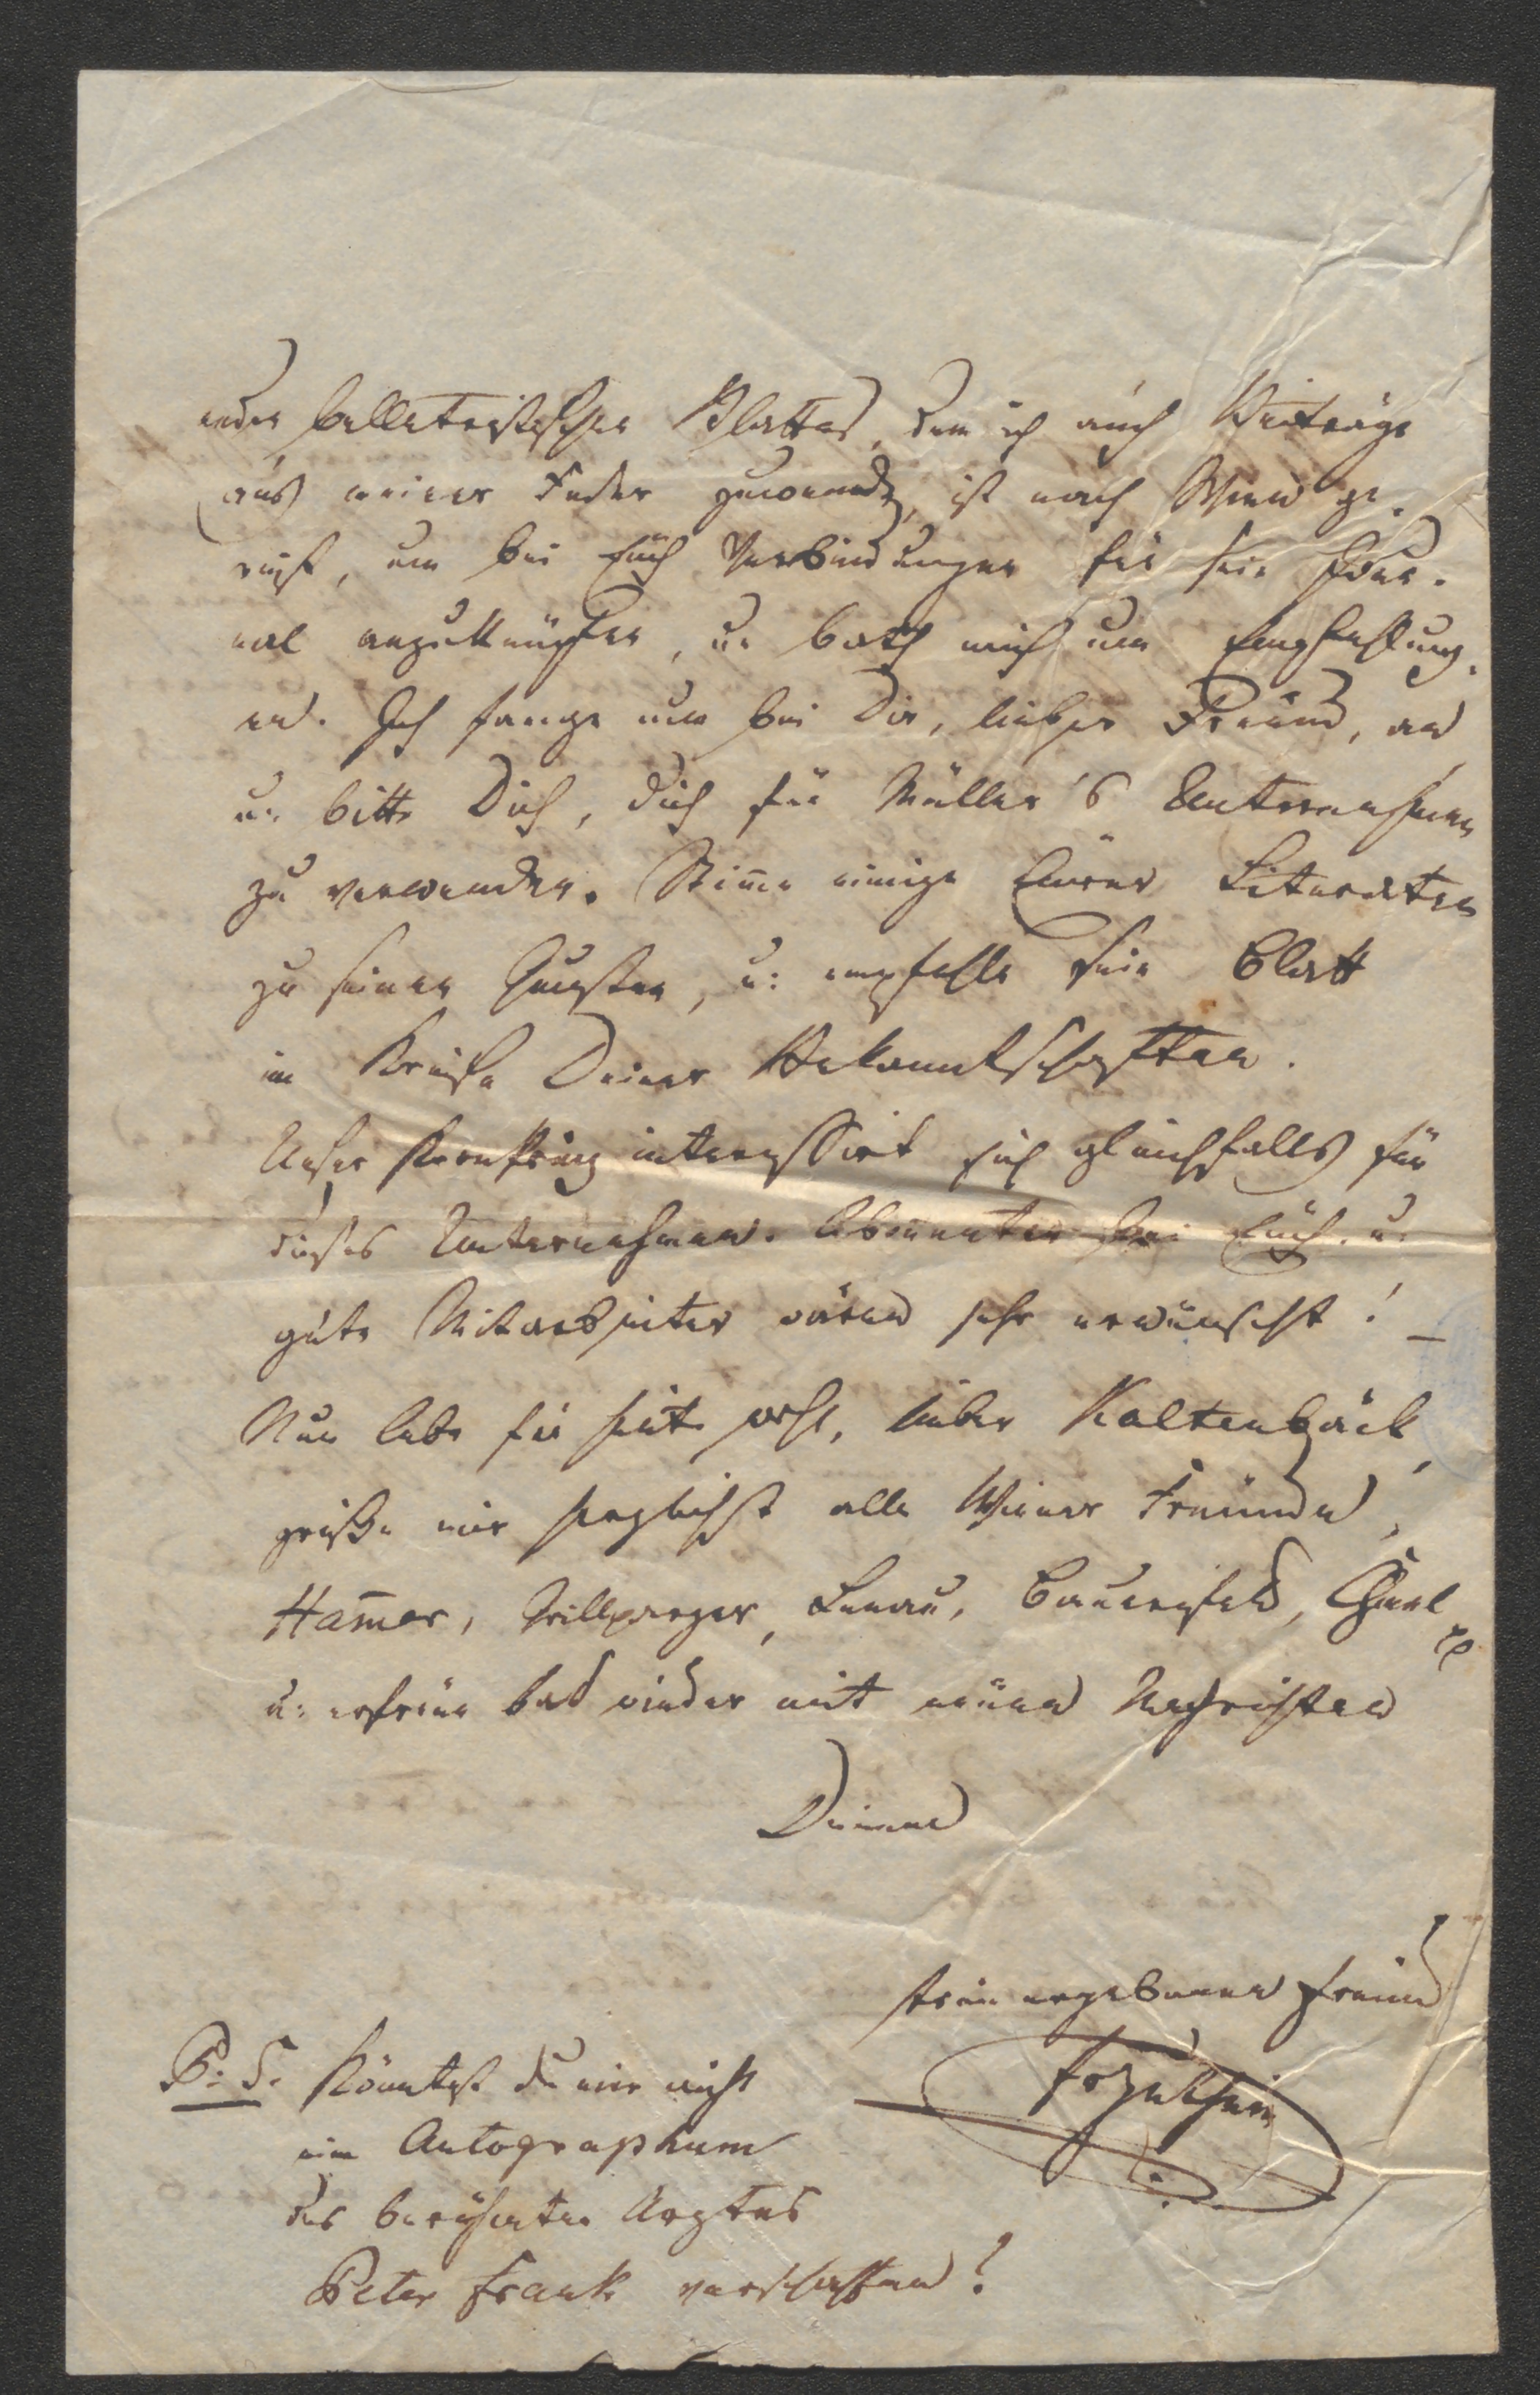 enden belletristischen Blattes, dem ich auch Beiträge
aus meiner Feder zuwende, ist nach Wien ge-
reist, um bei Euch Verbindungen für sein Jour-
nal anzuknüpfen, u. bath mich um Empfehlung-
en. Ich fange nun bei Dir, lieber Freund, an
u. bitte Dich, Dich für Müller's Unternehmen
zu verwenden. Stim̅e einige Eurer Literaten
zu seinen Gunsten, u: empfehle sein Blatt
im Kreise Deiner Bekanntschaften.
Unser Kronprinz interessirt sich gleichfalls für
dieses Unternehmen. Abon̅enten bei Euch u.
gute Mitarbeiter wären sehr erwünscht! –
Nun lebe für heute wohl, lieber Kaltenbäck,
grüße mir herzlichst alle Wiener Freunde,
Ham̅er, Grillparzer, Lenau, Bauernfeld,
u: erfreue bald wieder mit neuen Nachrichten
Deinen
treu ergebenen Freund
P: S. Könntest Du mir nicht
ein Autographum
des berühmten Arztes
Peter Frank verschaffen?